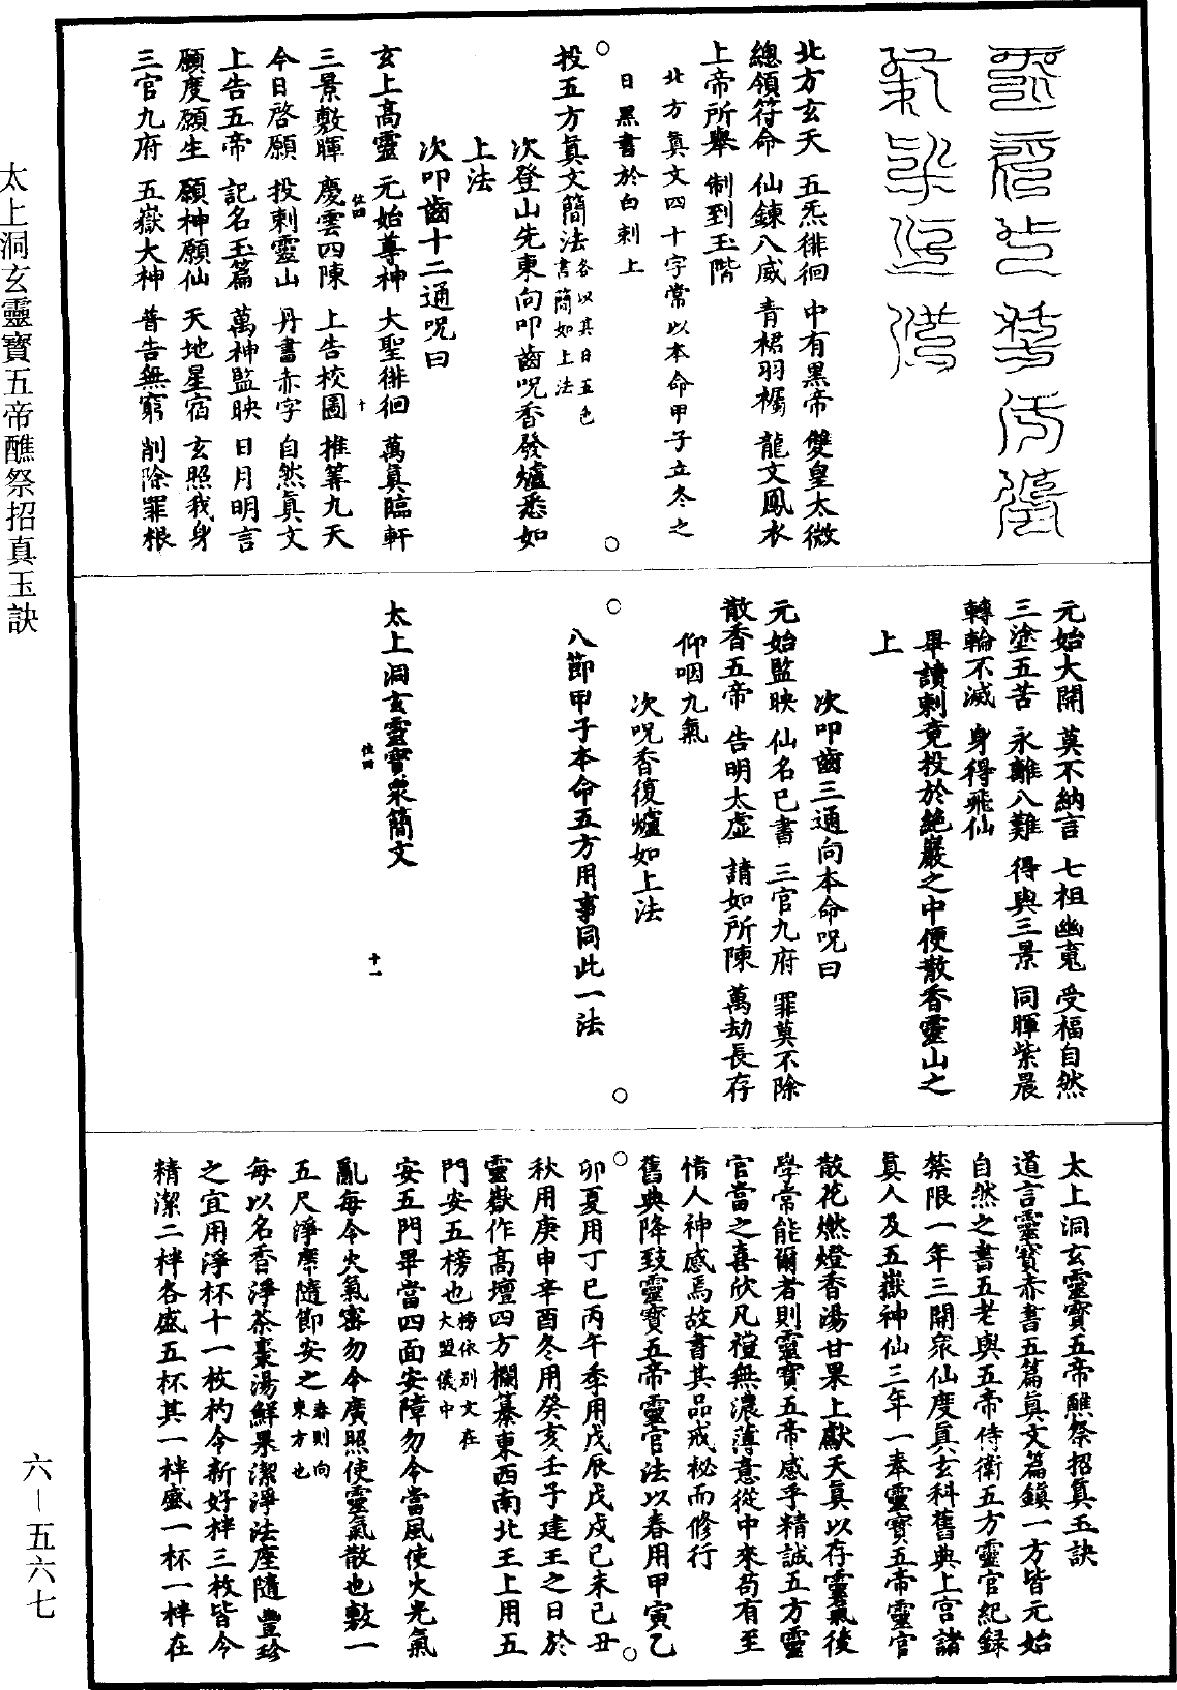 北方玄天　五炁徘徊　中有黑帝　雙皇太微
總領符命　仙鍊八威　青裙羽襡　龍文鳳衣
上帝所舉　制到玉階
北方眞文四十字常以本命甲子立冬之
日黑書於白刺上
投五方眞文簡法各以其日五色書簡如上法
次登山先東向叩齒呪香發爐悉如
上法
次叩齒十二通呪曰
玄上高靈　元始尊神　大聖徘徊　萬眞臨軒
三景敷暉　慶雲四陳　上告校圖　推筭九天
今日啓願　投刺靈山　丹書赤字　自然眞文
上告五帝　記名玉篇　萬神監映　日月明言
願度願生　願神願仙　天地星宿　玄照我身
三官九府　五嶽大神　普告無窮　削除罪根
元始大開　莫不納言　七祖幽寃　受福自然
三塗五苦　永離八難　得與三景　同暉紫晨
轉輪不滅　身得飛仙
畢讀刺竟投於絶巖之中便散香靈山之
上
次叩齒三通向本命呪曰
元始監映　仙名已書　三官九府　罪莫不除
散香五帝　告明太虛　請如所陳　萬劫長存
仰咽九氣
次呪香復爐如上法
八節甲子本命五方用事同此一法
太上洞玄靈寶衆簡文
太上洞玄靈寶五帝醮祭招眞玉訣
道言靈寶赤書五篇眞文篇鎭一方皆元始
自然之書五老與五帝侍衛五方靈官紀録
禁限一年三開衆仙度眞玄科舊典上宫諸
眞人及五嶽神仙三年一奉靈寶五帝靈官
散花燃燈香湯甘果上獻天眞以存靈氣後
學常能爾者則靈寶五帝感乎精誠五方靈
官當之喜欣凡禮無濃薄意從中來苟有至
情人神感焉故書其品戒秘而修行
舊典降致靈寶五帝靈官法以春用甲寅乙
卯夏用丁巳丙午季用戊辰戊戌己未己丑
秋用庚申辛酉冬用癸亥壬子建王之日於
靈嶽作高壇四方欄纂東西南北王上用五
門安五榜也榜依别文在大盟儀中
安五門畢當四面安障勿令當風使火光氣
亂每令火氣審勿令廣照使靈氣散也敷一
五尺淨席隨節安之春則向東方也
每以名香淨茶棗湯鮮果潔淨法座隨豐珍
之宜用淨杯十一枚杓令新好柈三枚皆令
精潔二柈各盛五杯其一柈盛一杯一柈在
太上洞玄靈寶五帝醮祭招真玉訣
六—五六七